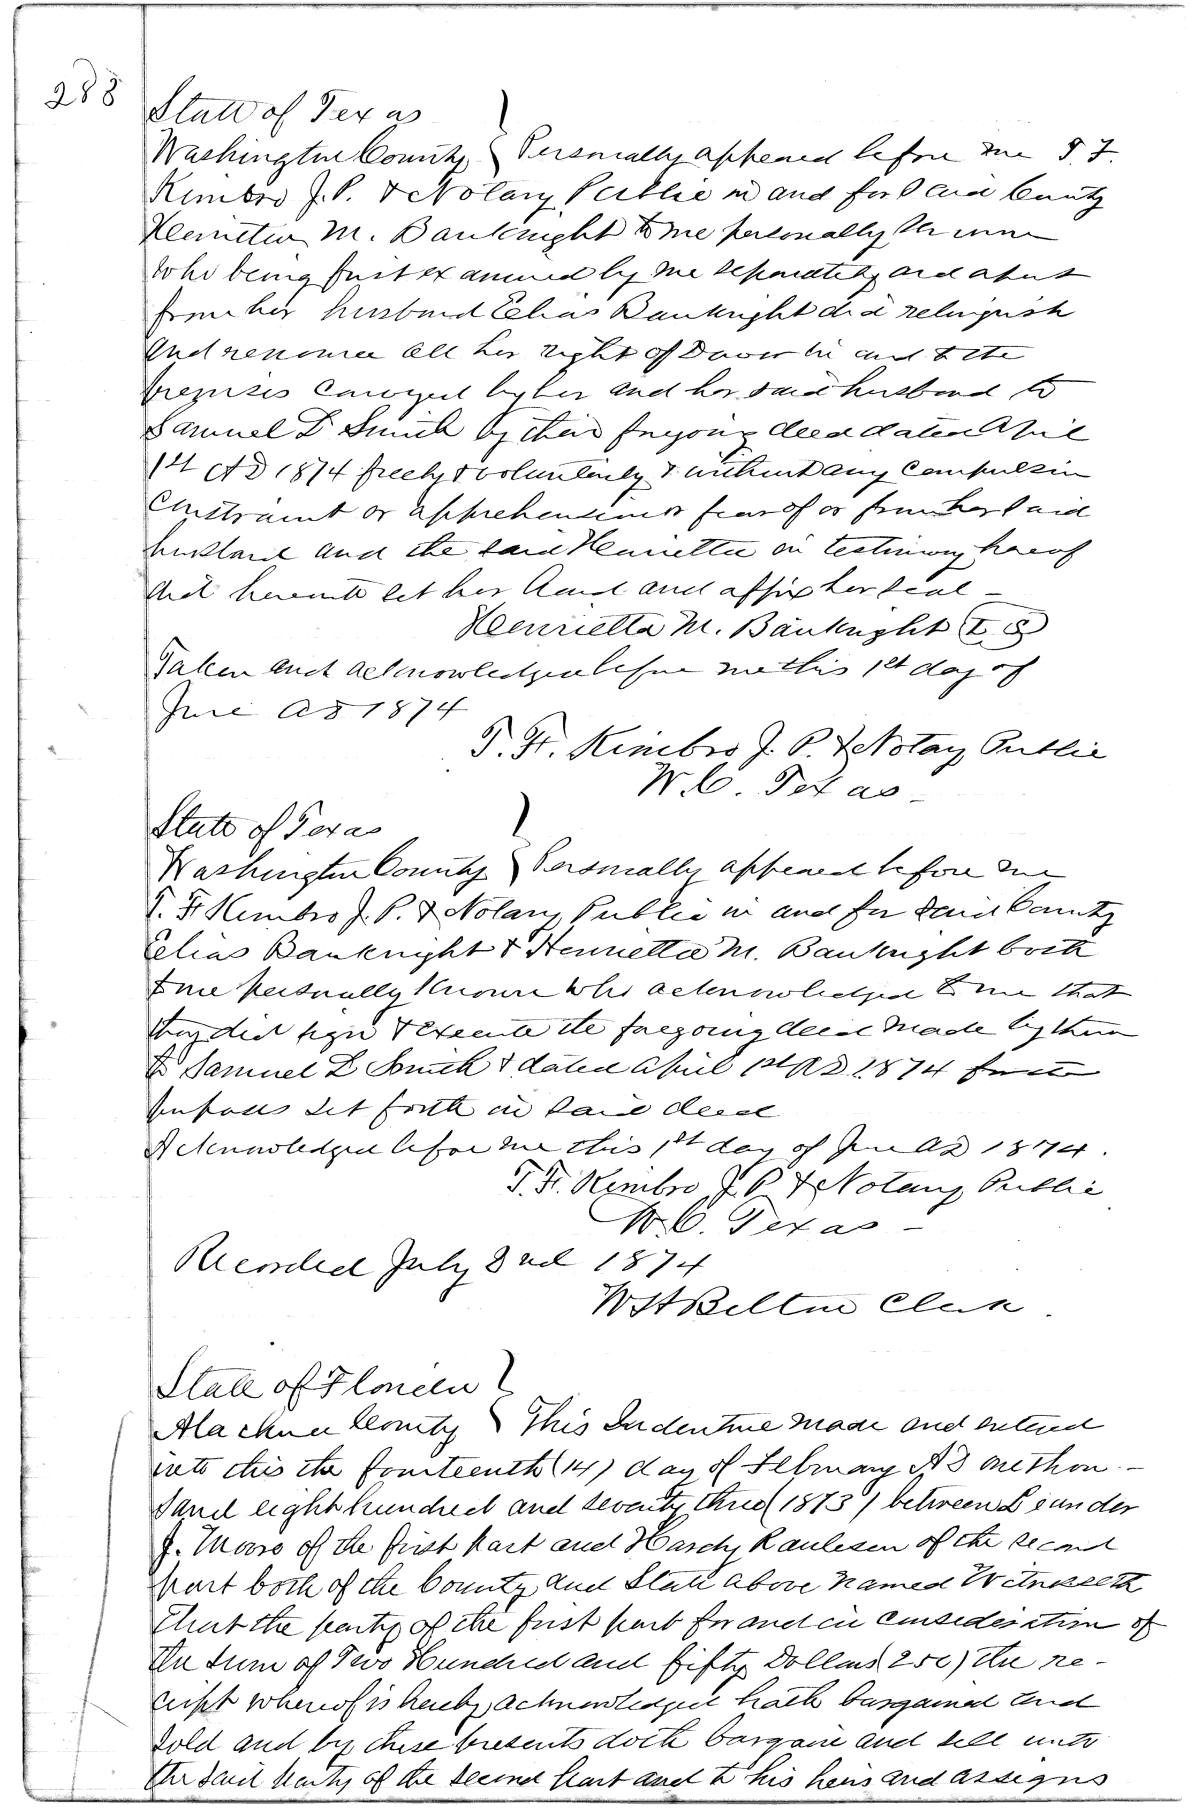 288
State of Texas
Washington County } Personally appeared before me T. F.
Kimbro J. P. & Notary Public in and for said County
Henrietta M. Bauknight to me personally known
who being first examined by me separately and apart
from her husband Elias Bauknight did relinquish
and renounce all her right of Dower in and to the
premises conveyed by her and her said husband to
Samuel D Smith by their foregoing deed dated April
1st AD 1874 freely & voluntarily & without any compulsion
constraint or apprehension or fear of or from her said
husband and the said Henrietta in testimony hereof
did hereunto set her hand and affix her seal —
Henrietta M. Bauknight (L S)
Taken and acknowledged before me this 1st day of
June AD 1874
T. F. Kimbro J. P. & Notary Public
W. C. Texas —
State of Texas
Washington County } Personally appeared before me
T. F Kimbro J. P. & Notary Public in and for said County
Elias Bauknight & Henrietta M. Bauknight both
to me personally known who acknowledged to me that
they did sign & execute the foregoing deed made by them
to Samuel D Smith & dated April 1st AD 1874 for the
purposes set forth in said deed
Acknowledged before me this 1st day of June AD 1874.
T. F. Kimbro J. P. & Notary Public
W. C. Texas —
Recorded July 2nd 1874
W H Belton Clerk.
State of Florida }
Alachua County } This Indenture made and entered
into this the fourteenth (14) day of February AD one thou-
sand eight hundred and seventy three (1873) between Leander
J. Moore of the first part and Hardy Raulesen of the second
part both of the County and State above named Witnesseth
that the party of the first part for and in consideration of
the sum of Two Hundred and fifty Dollars (250) the re-
ceipt whereof is hereby acknowledged hath bargained and
sold and by these presents doth bargain and sell unto
the said party of the second part and to his heirs and assigns